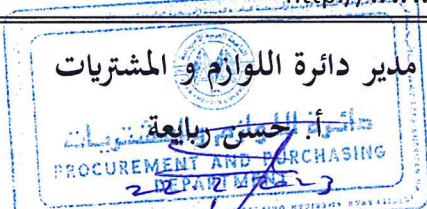 http://www
مدير دائرة اللوازم و المشتريات
أ. حسن ربايعة
دائرة اللوازم والمشتريات
PROCUREMENT AND PURCHASING
DEPARTMENT